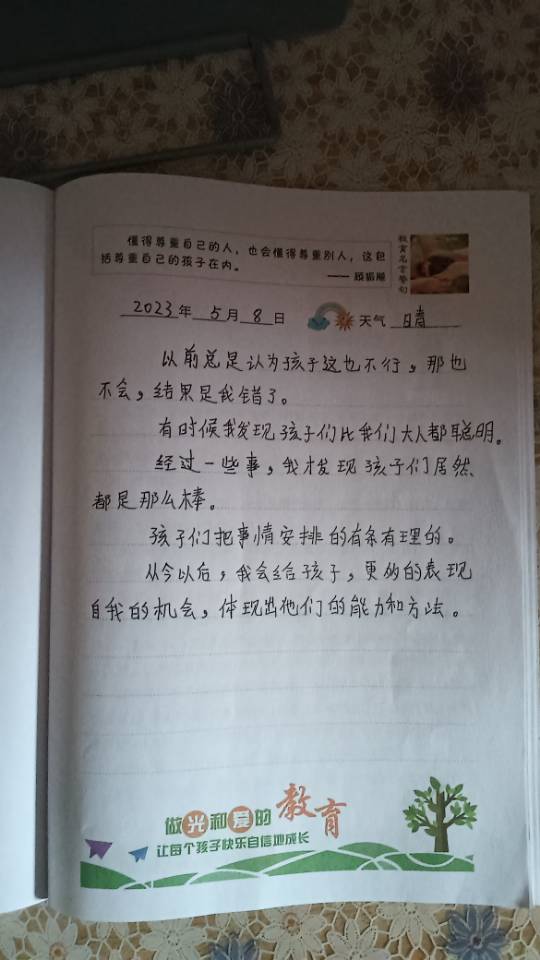 懂得尊重自己的人，也会懂得尊重别人，这包
括尊重自己的孩子在内。
—— 顾振飚
教育名言警句
2023年 5月 8日 天气 晴
以前总是认为孩子这也不行，那也
不会，结果是我错了。
有时候我发现孩子们比我们大人都聪明。
经过一些事，我才发现孩子们居然
都是那么棒。
孩子们把事情安排的有条有理的。
从今以后，我会给孩子，更多的表现
自我的机会，体现出他们的能力和方法。
做光和爱的教育
让每个孩子快乐自信地成长